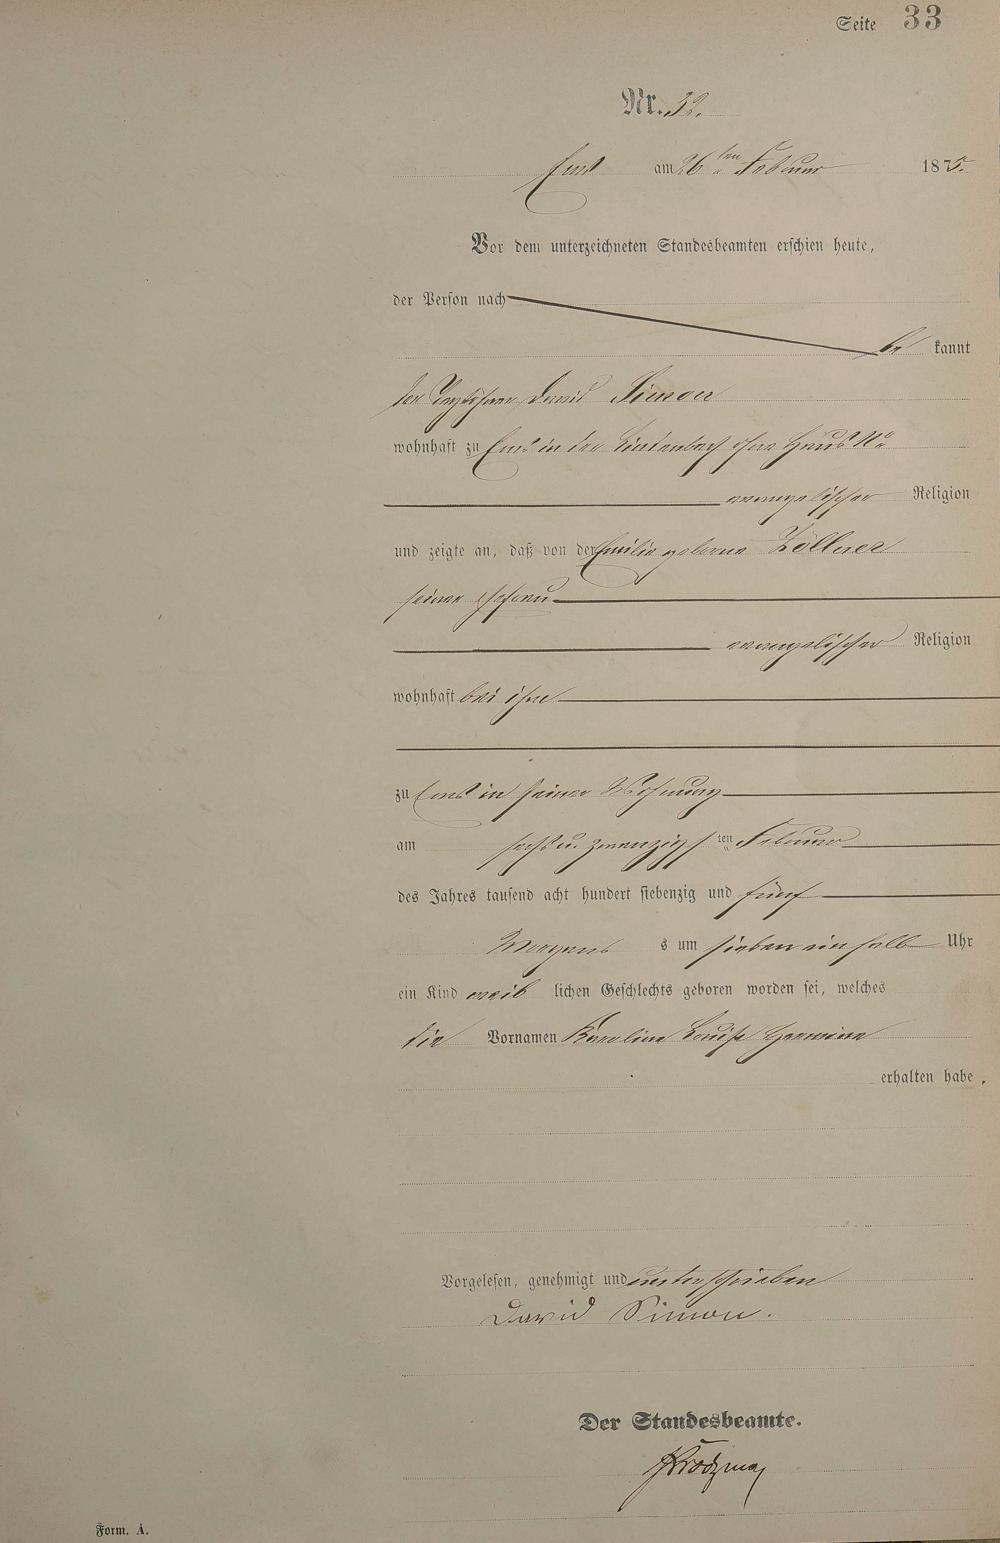 Seite 33
Nr. 32.
Ems am 26ten Februar 1875.
Vor dem unterzeichneten Standesbeamten erschien heute,
der Person nach
be kannt
der David Simon
wohnhaft zu Ems in der Lindenbach ohne Haus No
evangelischer Religion
und zeigte an, daß von der Emilie geborene Zöllner
seiner Ehefrau
evangelischer Religion
wohnhaft bei ihm
zu Ems in seiner Wohnung
am sechs u. zwanzigsten Februar
des Jahres tausend acht hundert siebenzig und fünf
Morgens s um sieben ein halb Uhr
ein Kind weib lichen Geschlechts geboren worden sei, welches
die Vornamen Karoline Louise Hermine
erhalten habe.
Vorgelesen, genehmigt und unterschrieben
David Simon.
Der Standesbeamte.
Form. A.